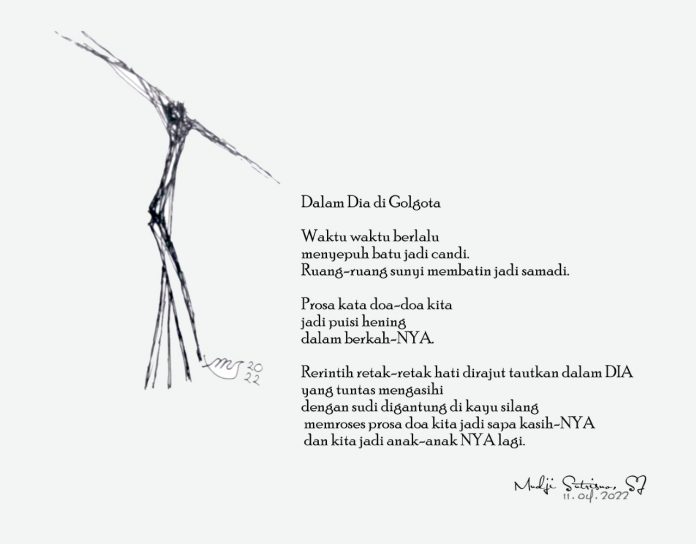 Dalam Dia di Golgota
Waktu waktu berlalu
menyepuh batu jadi candi.
Ruang-ruang sunyi membatin jadi samadi.
Prosa kata doa-doa kita
jadi puisi hening
dalam berkah-NYA.
Rerintih retak-retak hati dirajut tautkan dalam DIA
yang tuntas mengasihi
dengan sudi digantung di kayu silang
memroses prosa doa kita jadi sapa kasih-NYA
dan kita jadi anak-anak NYA lagi.
ms 20
22
Mudji Sutrisno, SJ
11.04.2022